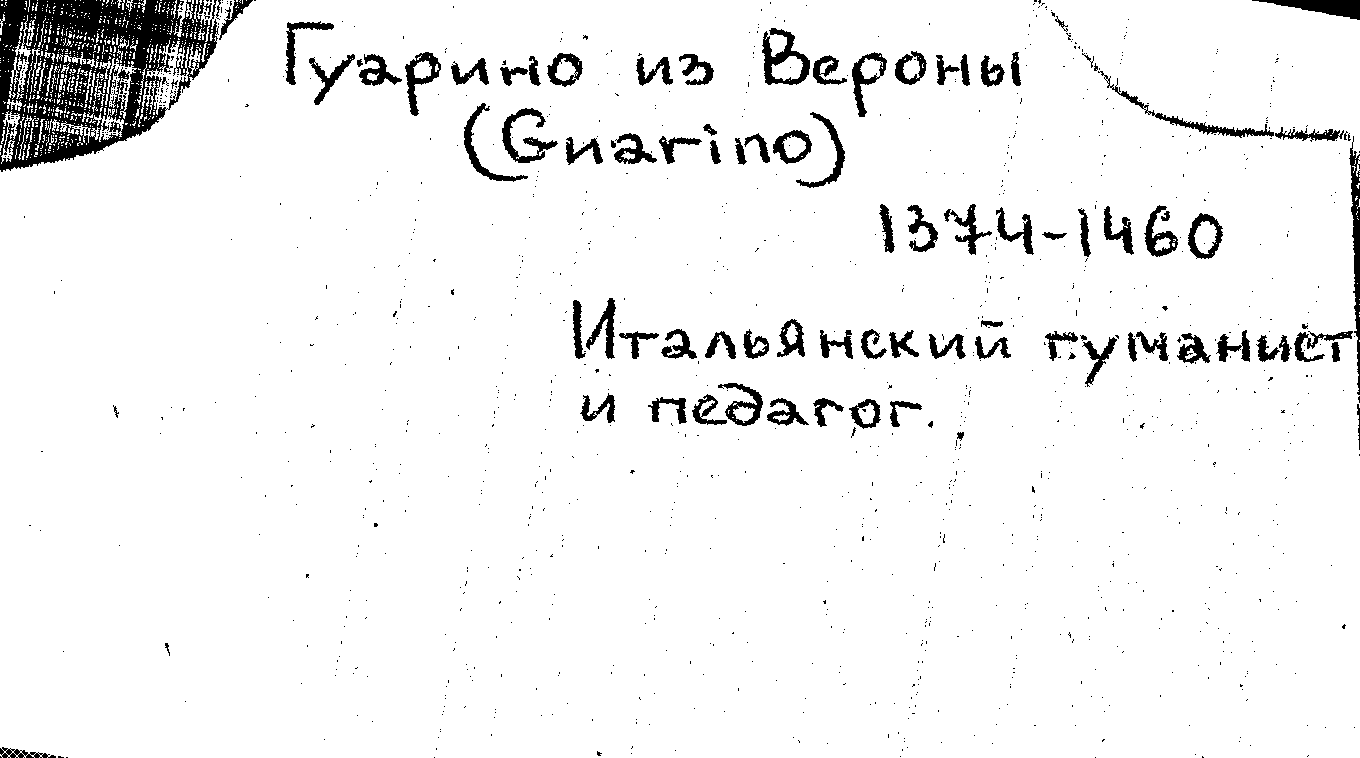 Гуарино из Вероны
(Guarino)
1374-1460
Итальянский гуманист
и педагог.